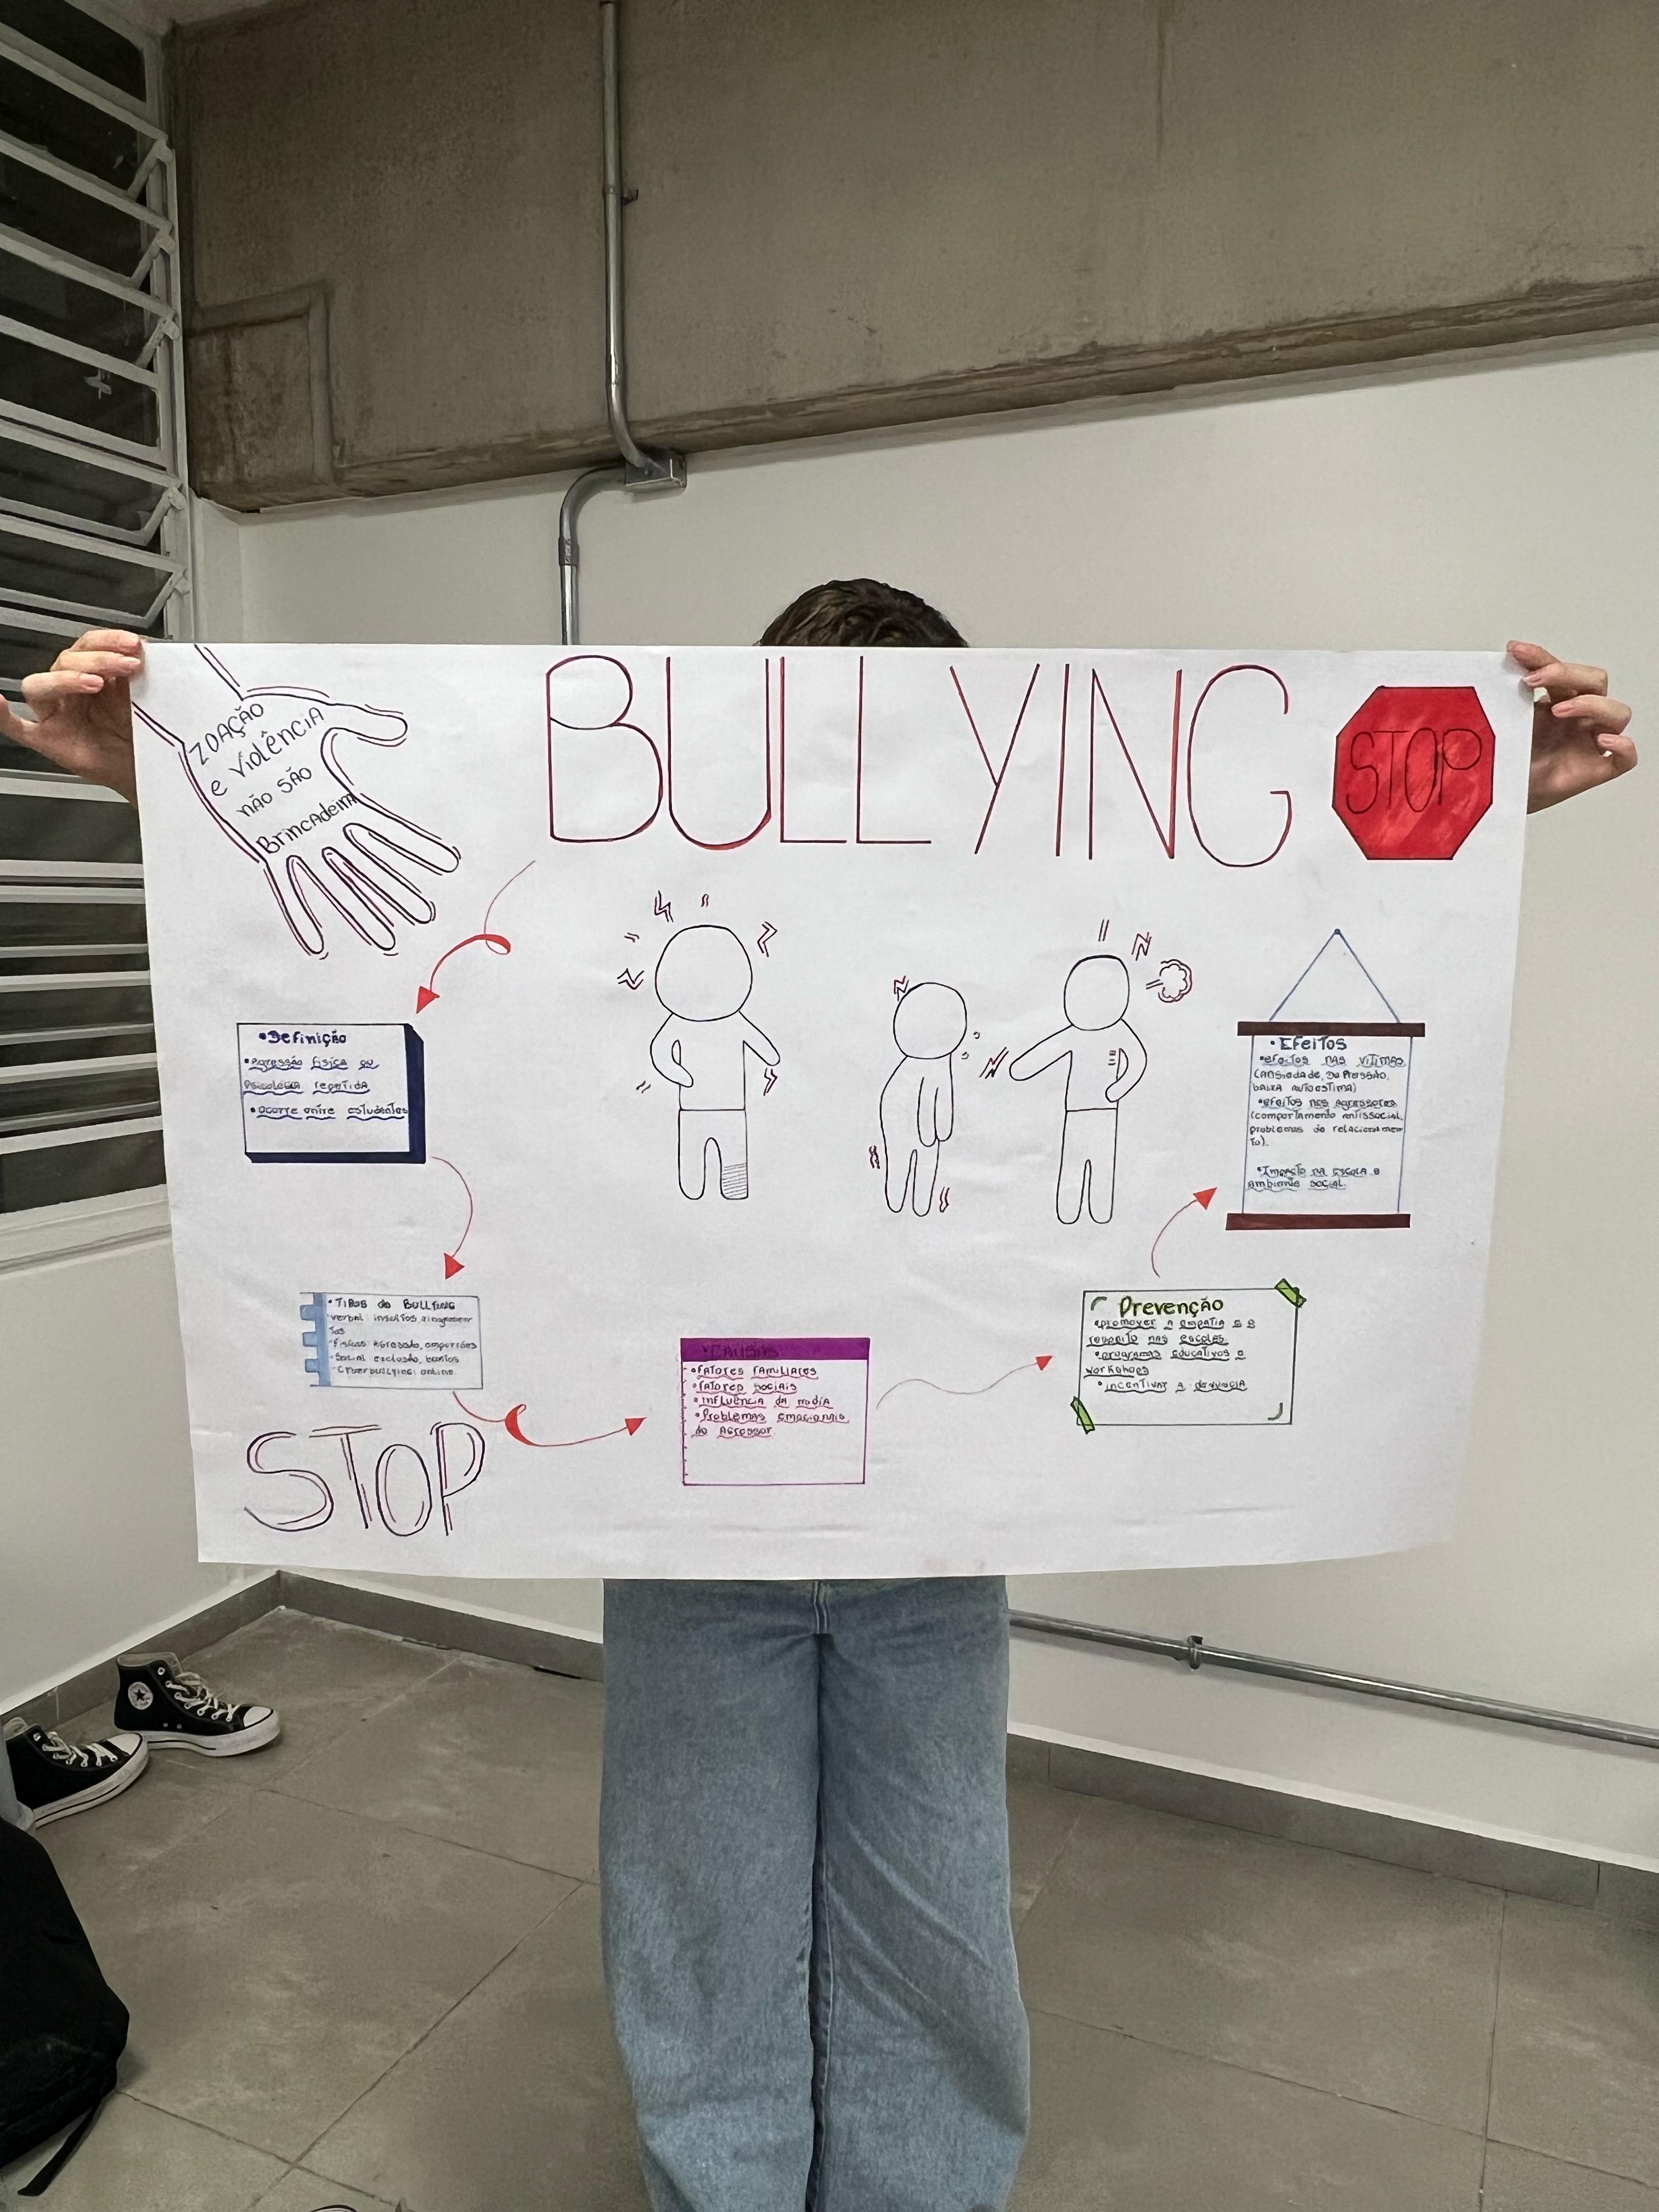 ZOAÇÃO
e violência
não são
Brincadeira
BULLYING
STOP
• Definição
• Agressão física ou
psicológica repetida
• ocorre entre estudantes
• Tipos de BULLYING
verbal: insultos, xingamen
tos
- Físico: agressão, empurrões
- Social exclusão, boatos
- Cyberbullying: online
STOP
• CAUSAS
• FATORES FAMILIARES
• FATORES SOCIAIS
• INFLUÊNCIA da mídia
• Problemas emocionais
do AGRESSOR
Prevenção
• promover a empatia e o
respeito nas escolas
• programas educativos e
workshops
• incentivar a denúncia
• EFEITOS
• efeitos nas vítimas
(ansiedade, depressão,
baixa autoestima)
• efeitos nos agressores
(comportamento antissocial,
problemas de relacionamen
to).
• Impacto na escola e
ambiente social